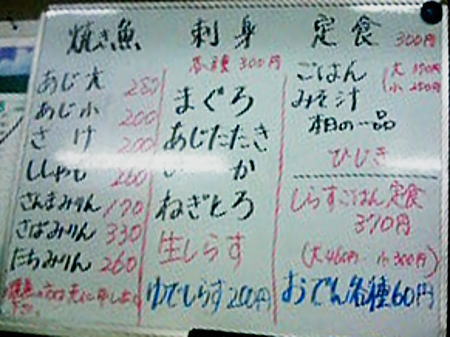 焼き魚
あじ大 280
あじ小 200
さけ 200
ししゃも 260
さんまみりん 170
さばみりん 330
たちみりん 260
刺身
各種 300円
まぐろ
あじたたき
いか
ねぎとろ
生しらす
ゆでしらす 200円
定食 300円
ごはん
みそ汁
本日の一品
ひじき
しらすごはん定食
370円
(大460円 小300円)
おでん各種60円